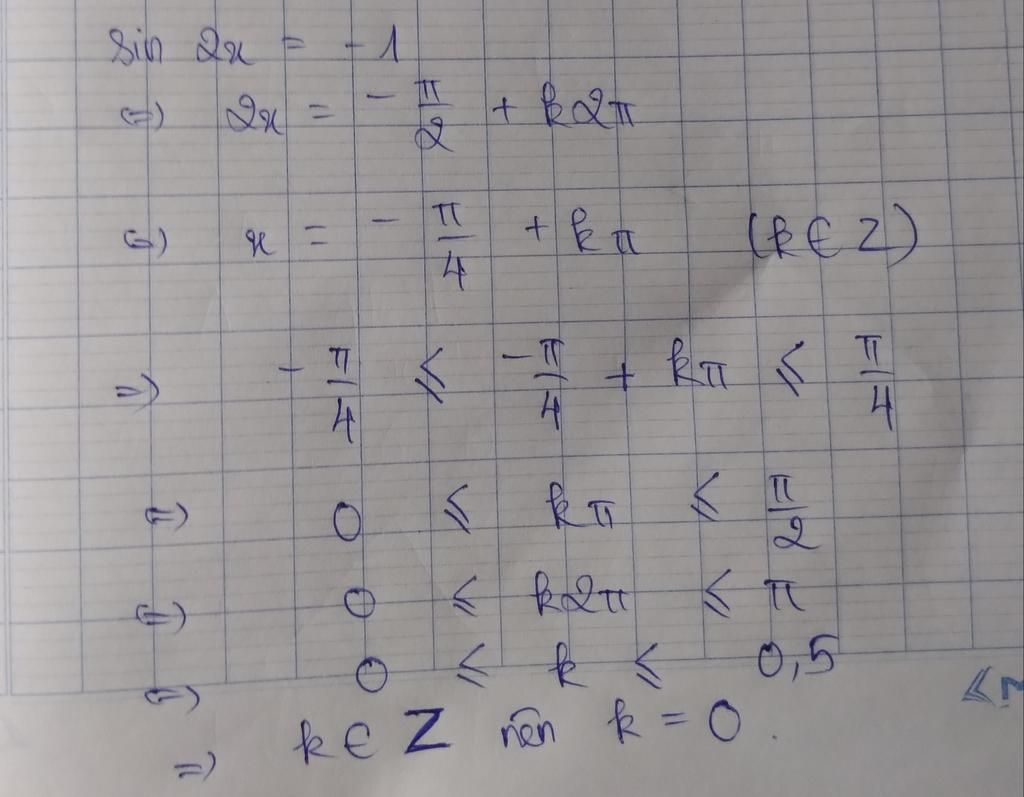 sin 2x = -1
⇔ 2x = -π/2 + k2π
⇔ x = -π/4 + kπ (k ∈ Z)
⇒ -π/4 ⩽ -π/4 + kπ ⩽ π/4
⇔ 0 ⩽ kπ ⩽ π/2
⇔ 0 ⩽ k2π ⩽ π
⇔ 0 ⩽ k ⩽ 0,5
⇒ k ∈ Z nên k = 0.